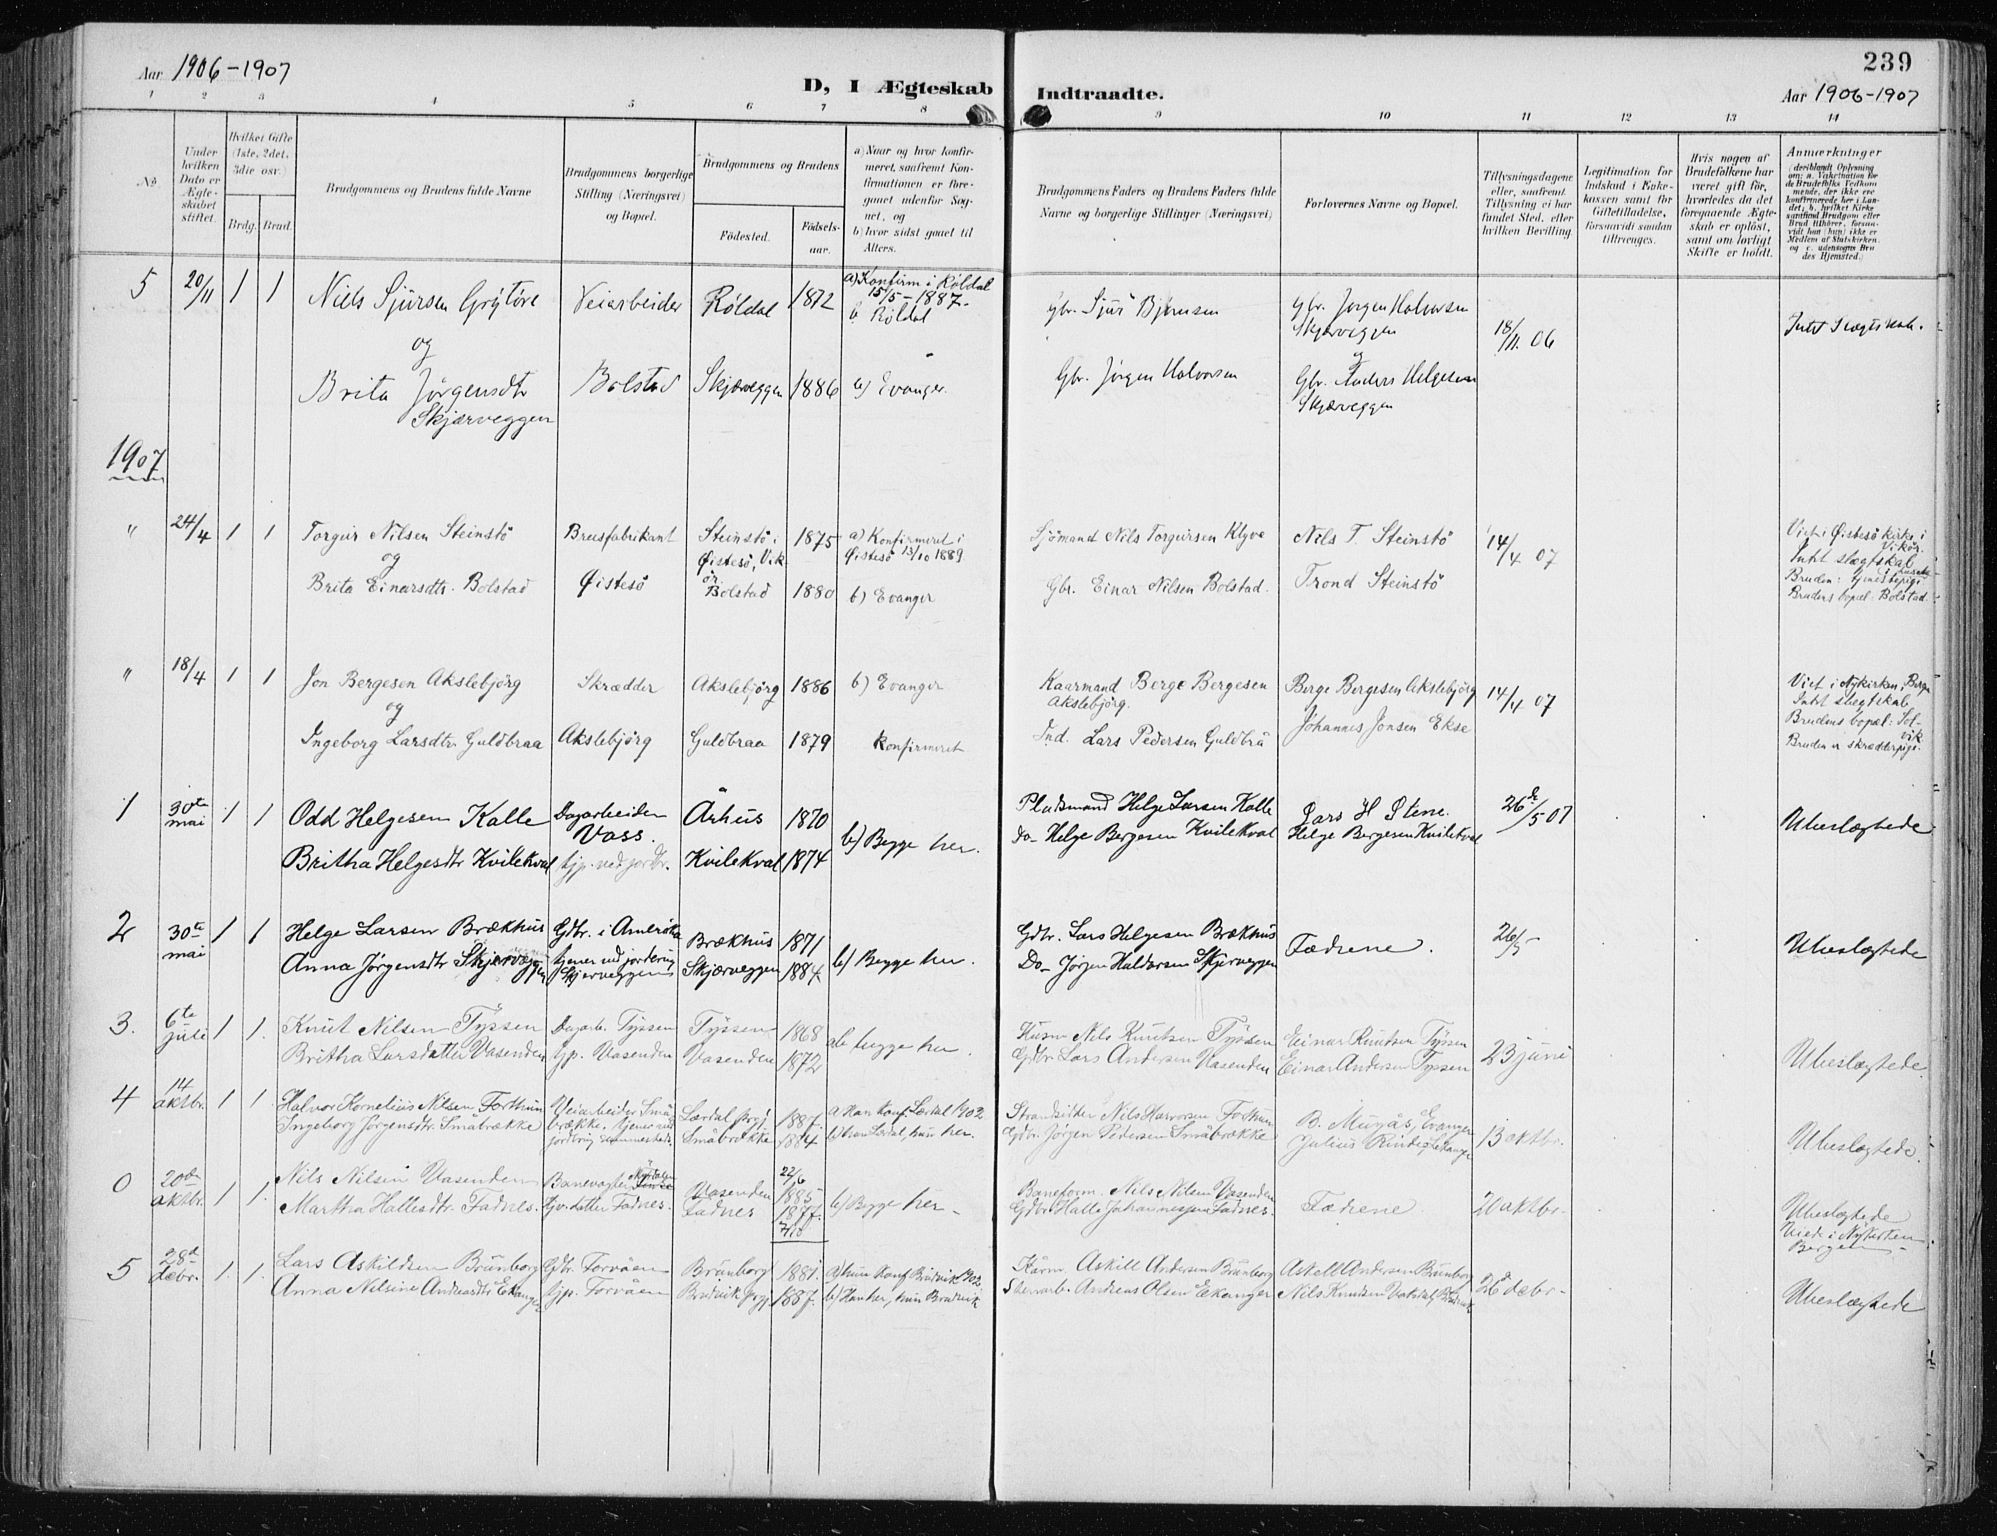 239
Aar 1906-1907
D, I Ægteskab Indtraadte.
Aar 1906-1907
1 2 3 4 5 6 7 8 9 10 11 12 13 14
No
Under hvilken Dato er Ægteskabet stiftet.
Hvilket Gifte (1ste, 2det, 3die osv.)
Brdg. Brud.
Brudgommens og Brudens fulde Navne
Brudgommens borgerlige Stilling (Næringsvei) og Bopæl.
Brudgommens og Brudens
Fødested.
Fødselsaar.
a) Naar og hvor konfirmeret, saafremt Konfirmationen er foregaaet udenfor Sognet, og
b) hvor sidst gaaet til Alters.
Brudgommens Faders og Brudens Faders fulde Navne og borgerlige Stillinger (Næringsvei)
Forlovernes Navne og Bopæl.
Tillysningsdagene eller, saafremt Tillysning ei har fundet Sted, efter hvilken Bevilling.
Legitimation for Indskud i Enkekassen samt for Giftetilladelse, forsaavidt saadan tiltrænges.
Hvis nogen af Brudefolkene har været gift før, hvorledes da det foregaaende Ægteskab er opløst, samt om lovligt Skifte er holdt.
Anmærkninger
(deriblandt Oplysning om: a. Vakcination for de Brudefolks Vedkommende, der ikke ere konfirmerede her i Landet; b. hvilket Kirkesamfund Brudgom eller Brud tilhører, forsaavidt han (hun) ikke er Medlem af Statskirken, og c. udensogns Brudes Hjemsted.)
5 20/11 1 1 Niels Sjursen Grytøre Veiarbeider Røldal 1872 a) Konfirm i Røldal 15/5-1887- b Røldal Gbr. Sjur Bjørnsen Gbr. Jørgen Halvorsen Skjærveggen 18/11. 06 Intet Slægtskab.
og
Brita Jørgensdtr Skjærveggen Bolstad Skjærveggen 1886 b) Evanger. Gbr. Jørgen Halvorsen Gbr. Anders Helgesen Skjærveggen
1907
" 24/4 1 1 Torgur Nilsen Steinstö Brusfabrikant Steinstö i Øistesö, Vikör 1875 a) Konfirmeret i Øistesö 13/10 1889 Sjömand Nils Torgursen Klyve Nils T. Steinstö 14/4 07 Viet i Øistesö kirke i Vikör. Intet slægtskal
og
Brita Einarsdtr. Bolstad Øistesö Bolstad 1880 b) Evanger Gbr. Einar Nilsen Bolstad. Trond Steinstö Bruden: tjenestepige Brudens bopæl: Bolstad.
" 18/4 1 1 Jon Bergesen Akslebjörg Skrædder Akslebjörg 1886 b) Evanger Kaarmand Berge Bergesen Akslebjörg. Berge Bergesen Akslebjörg 14/4 07 Viet i Nykirken, Bergen Intet slægtskab,
og
Ingeborg Larsdtr. Guldbraa Akslebjörg Guldbraa 1879 Konfirmeret Ind. Lars Pedersen Guldbrå Johannis Jonsen Ekse Brudens bopæl: Solvik. Bruden er skrædderpige.
1 30te mai 1 1 Odd Helgesen Kalle Dagarbeider Voss. Århus 1870 b) Begge her. Pladsmand Helge Larsen Kalle Lars H Stene. 26de/5 07 Ubeslægtede
Britha Helgesdtr Kvilekval tjp. ved jordbr. Kvilekval 1874 Do- Helge Bergesen Kvilekval Helge Bergesen Kvilekval
2 30te mai 1 1 Helge Larsen Brækhus Gdbr. i Amerika Brækhus 1871 b) Begge her. Gdbr. Lars Helgesen Brækhus Fædrene. 26/5 Ubeslægtede
Anna Jørgensdtr Skjærveggen tjener ved jordbrug Skjerveggen Skjærveggen 1884 Do- Jørgen Haldorsen Skjerveggen
3. 6te juli 1 1. Knut Nilsen Tyssen Dagarb. Tyssen Tyssen 1868 ab begge her. Husm Nils Knutsen Tyssen Einar Knutsen Tyssen 23 juni Ubeslægtede.
Britha Larsdatter Vasenden tjp. Vasenden Vasenden 1872 Gdbr. Lars Andersen Vasenden Einar Andersen Tyssen
4 14 oktbr. 1 1 Halvor Kornelius Nilsen Forthun Veiarbeider Småbrække. Lærdal prgj. 1887. a Han konf. Lærdal 1902 Strandsitter Nils Halvorsen Forthun B. Mugås, Evanger 13 oktbr. Ubeslægtede.
Ingeborg Jørgensdtr. Småbrække tjener ved jordbrug Småbrække 1884. b) han Lærdal, hun her. Gdbr. Jørgen Pedersen Småbrække Julius Rinde, Leikanger
0 20de oktbr. 1 1. Nils Nilsen Vasenden Banevogter Vasenden 22/6 1885 b) Begge her- Baneform. Nils Nilsen Vasenden Fædrene 20 oktbr- Ubeslægtede
Martha Hallesdtr. Fadnes. Gbr. datter Fadnes. Fadnes 1877. 7/10 Gdbr. Halle Johannessen Fadnes. Viede i Nykirken Bergen-
5 28de debr. 1. 1. Lars Askildsen Brunborg Gdbr. Forvåen Brunborg 1881. a) hun konf Bruvik 1902 Kårm. Askill Andersen Brunborg Askell Andersen Brunborg 26de debr- Ubeslægtede
Anna Nilsine Andreasdtr Eikanger tjp. Forvåen Bruvik prgj 1887. b) Han her, hun Bruvik Andreas Olsen Eikanger Nils Knudsen